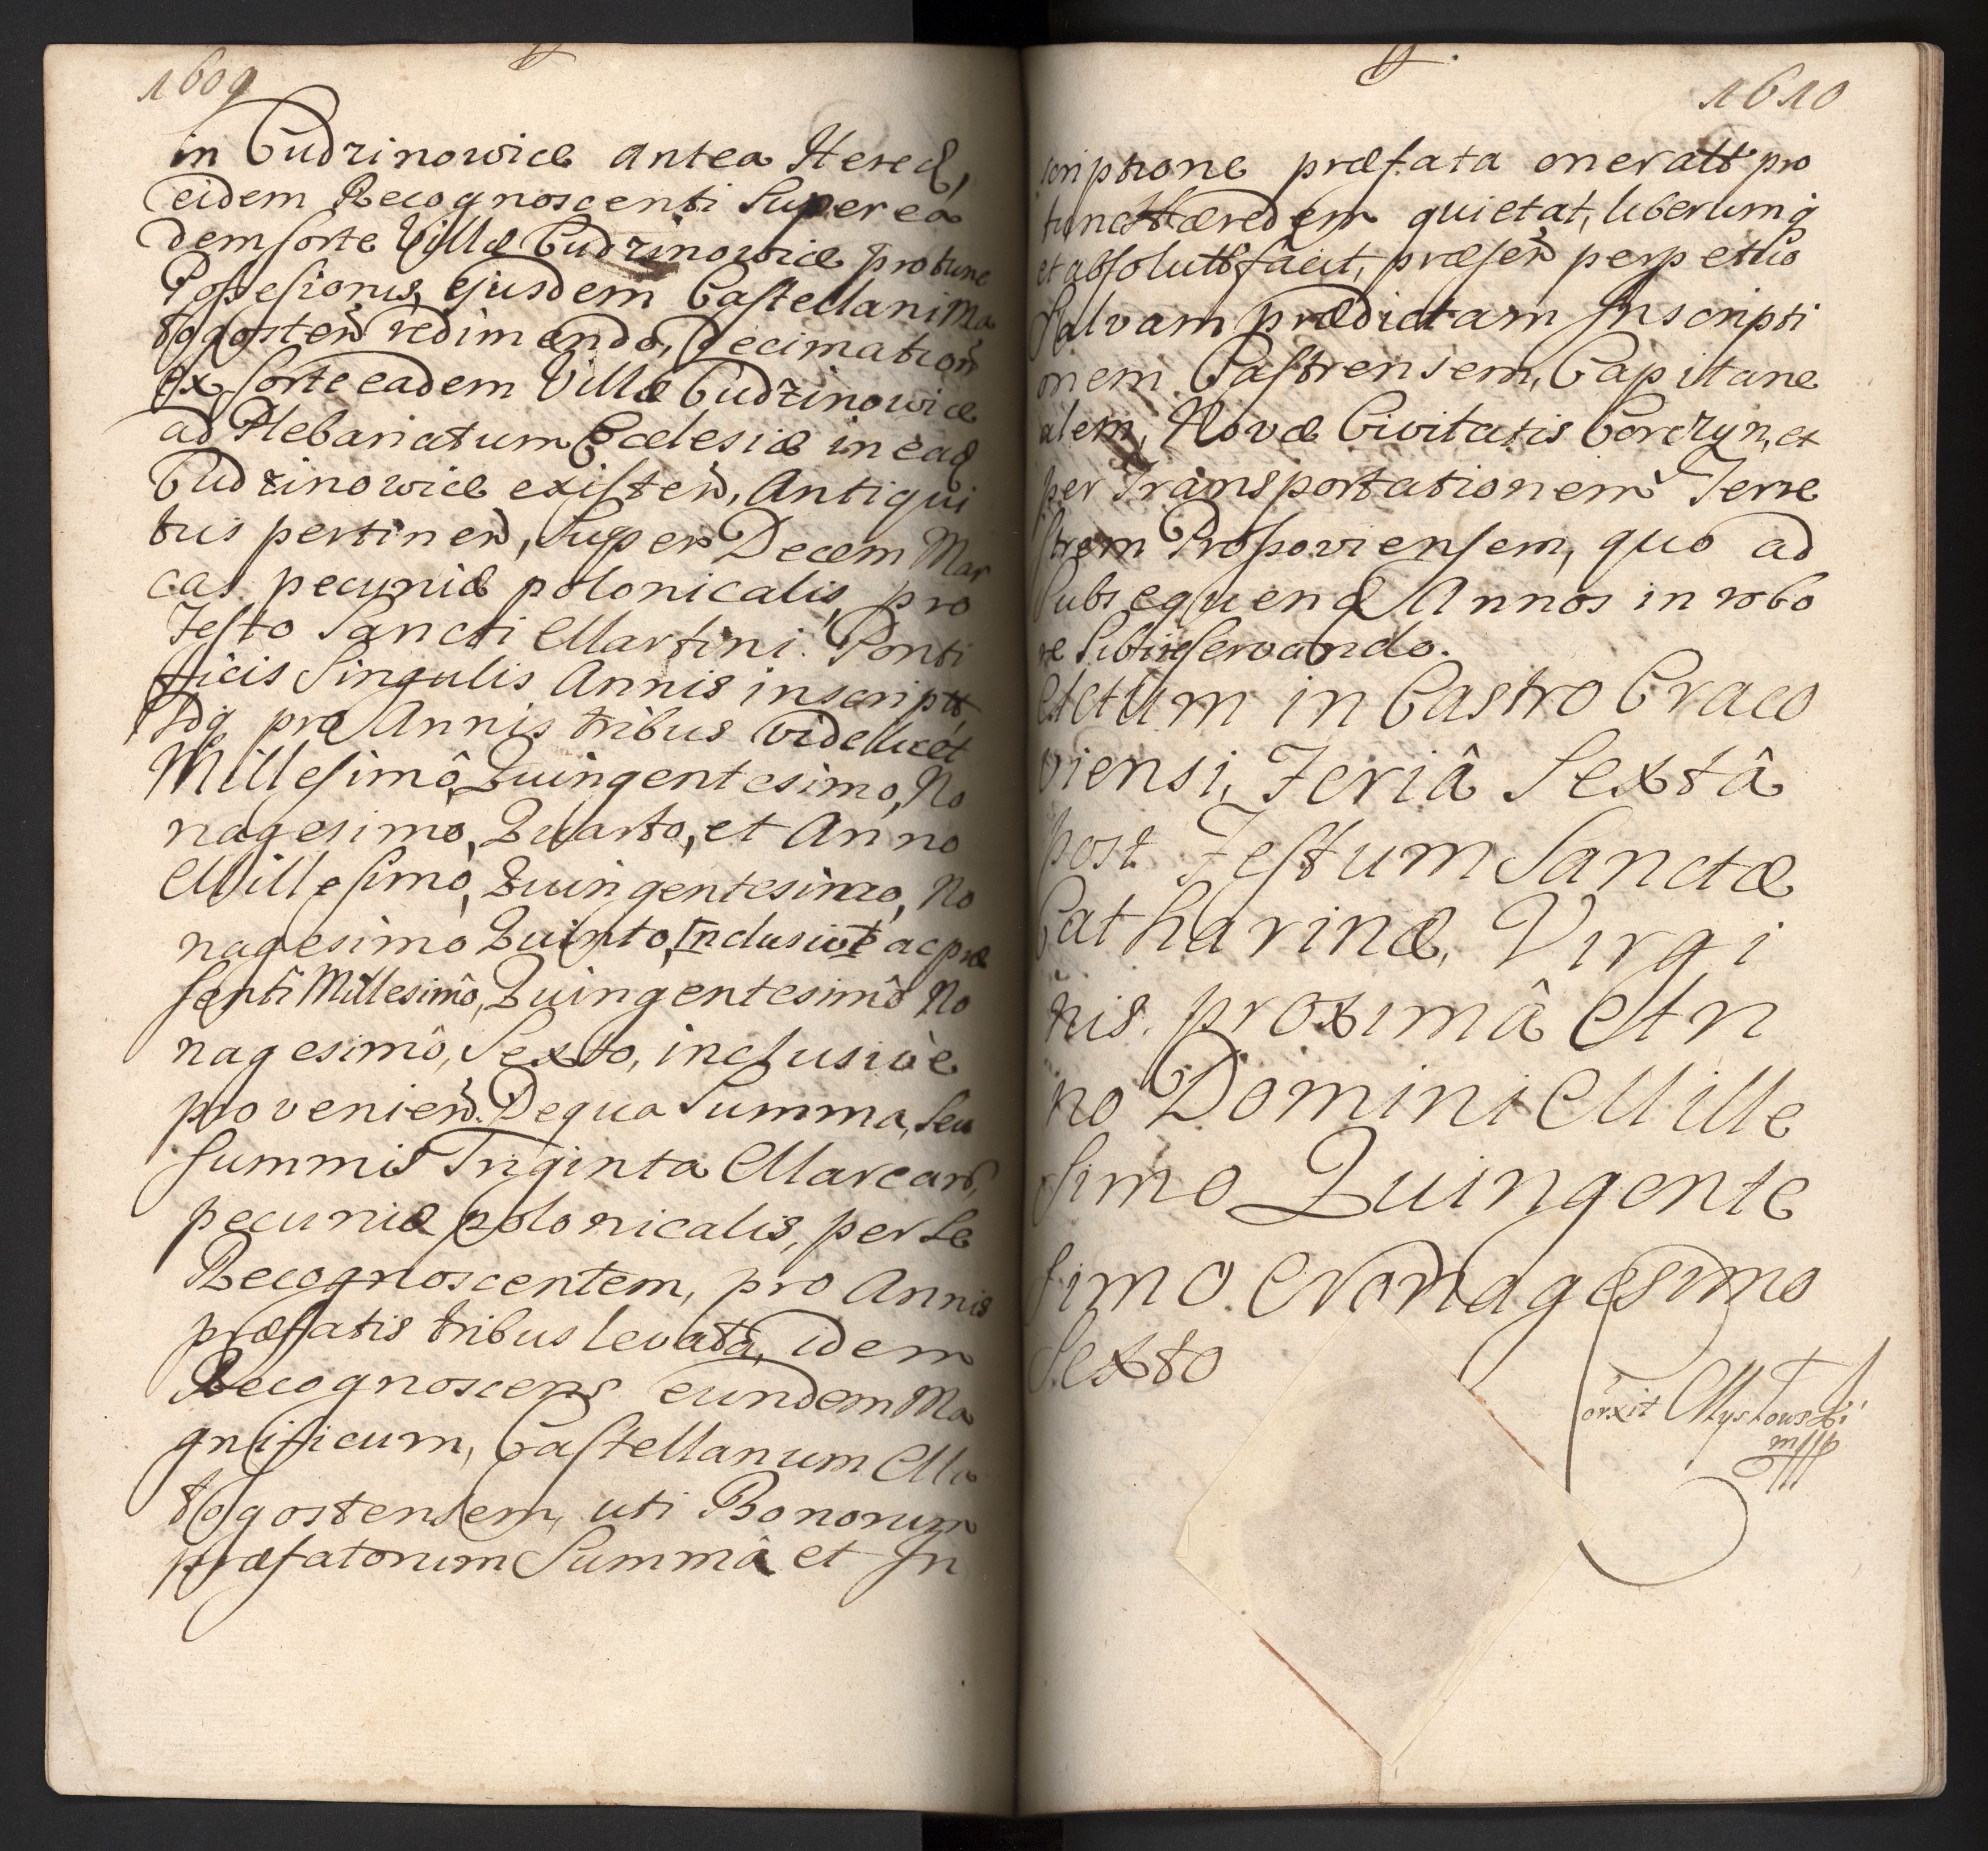 1609
in Cudzinowice antea Hered,
eidem Recognoscenti Super ea
dem sorte Villæ Cudzinowice pro tunc
Possesionis, ejusdem Castellani Ma
łogosten redimendo, Decimation
ex sorte eadem Villæ Cudzinowice
ad Plebanatum Ecclesiæ in ead
Cudzinowice existen, Antiqui
tus pertinen, Super Decem Mar
cas pecuniæ polonicalis, pro
Festo Sancti Martini Ponti
ficis Singulis Annis inscript
Idq pro Annis tribus videlicet
Millesimô, Quingentesimo, No
nagesimo, Quarto, et Anno
Millesimo, Quingentesimo, No
nagesimo Quinto, inclusive ac præ
senti Millesimô, Quingentesimô No
nagesimô, Sexto, inclusivè
provenien. De qua Summa, seu
Summis Triginta Marcar,
pecuniæ polonicalis, per se
Recognoscentem, pro Annis
præfatis tribus levata, idem
Recognoscens eundem Ma
gnificum, Castellanum Ma
łogostensem, uti Bonorum
præfatorum Summâ et In
1610
scriptione præfata onerat pro
tunc Hæredem quietat, liberumq
et absolut facit, præsen perpetuo
Salvam prædictam Inscripti
onem Castrensem, Capitane
alem, Novæ Civitatis Corczyn, et
per Transportationem Terre
strem Prossoviensem, quo ad
Subsequend Annos in robo
re Sibi reservando.
Actum in Castro Craco
viensi, Feriâ Sextâ
post Festum Sanctæ
Catharinæ, Virgi
nis. proximâ An
no Domini Mille
simo Quingente
simo. Nonagesimo
Sexto
Corxit Mystowski
mpp